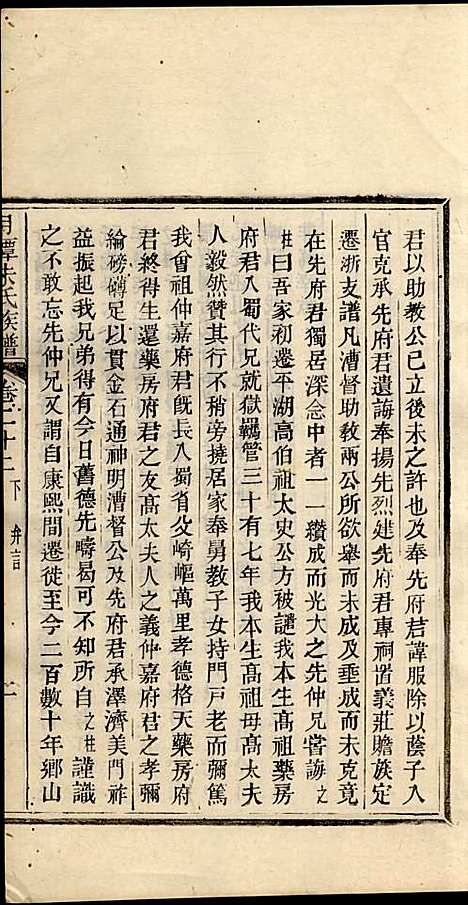 君以助教公已立後未之許也及奉先府君諱服除以蔭子入
官克承先府君遺誨奉揚先烈建先府君專祠置義莊贍族定
遷浙支譜凡漕督助教兩公所欲舉而未成及垂成而未克竟
在先府君獨居深念中者一一纘成而光大之先仲兄嘗誨之
柱曰吾家初遷平湖高伯祖太史公方被譴我本生高祖藥房
府君入蜀代兄就獄羈管三十有七年我本生高祖母高太夫
人毅然贊其行不稍旁撓居家奉舅教子女持門戸老而彌篤
我曾祖仲嘉府君旣長入蜀省父崎嶇萬里孝德格天藥房府
君終得生還藥房府君之友高太夫人之義仲嘉府君之孝彌
綸磅礡足以貫金石通神明漕督公及先府君承澤濟美門祚
益振起我兄弟得有今日舊德先疇曷可不知所自之柱謹識
之不敢忘先仲兄又謂自康熙間遷徙至今二百數十年鄉山
月潭朱氏族譜 卷二十二 下 弁言